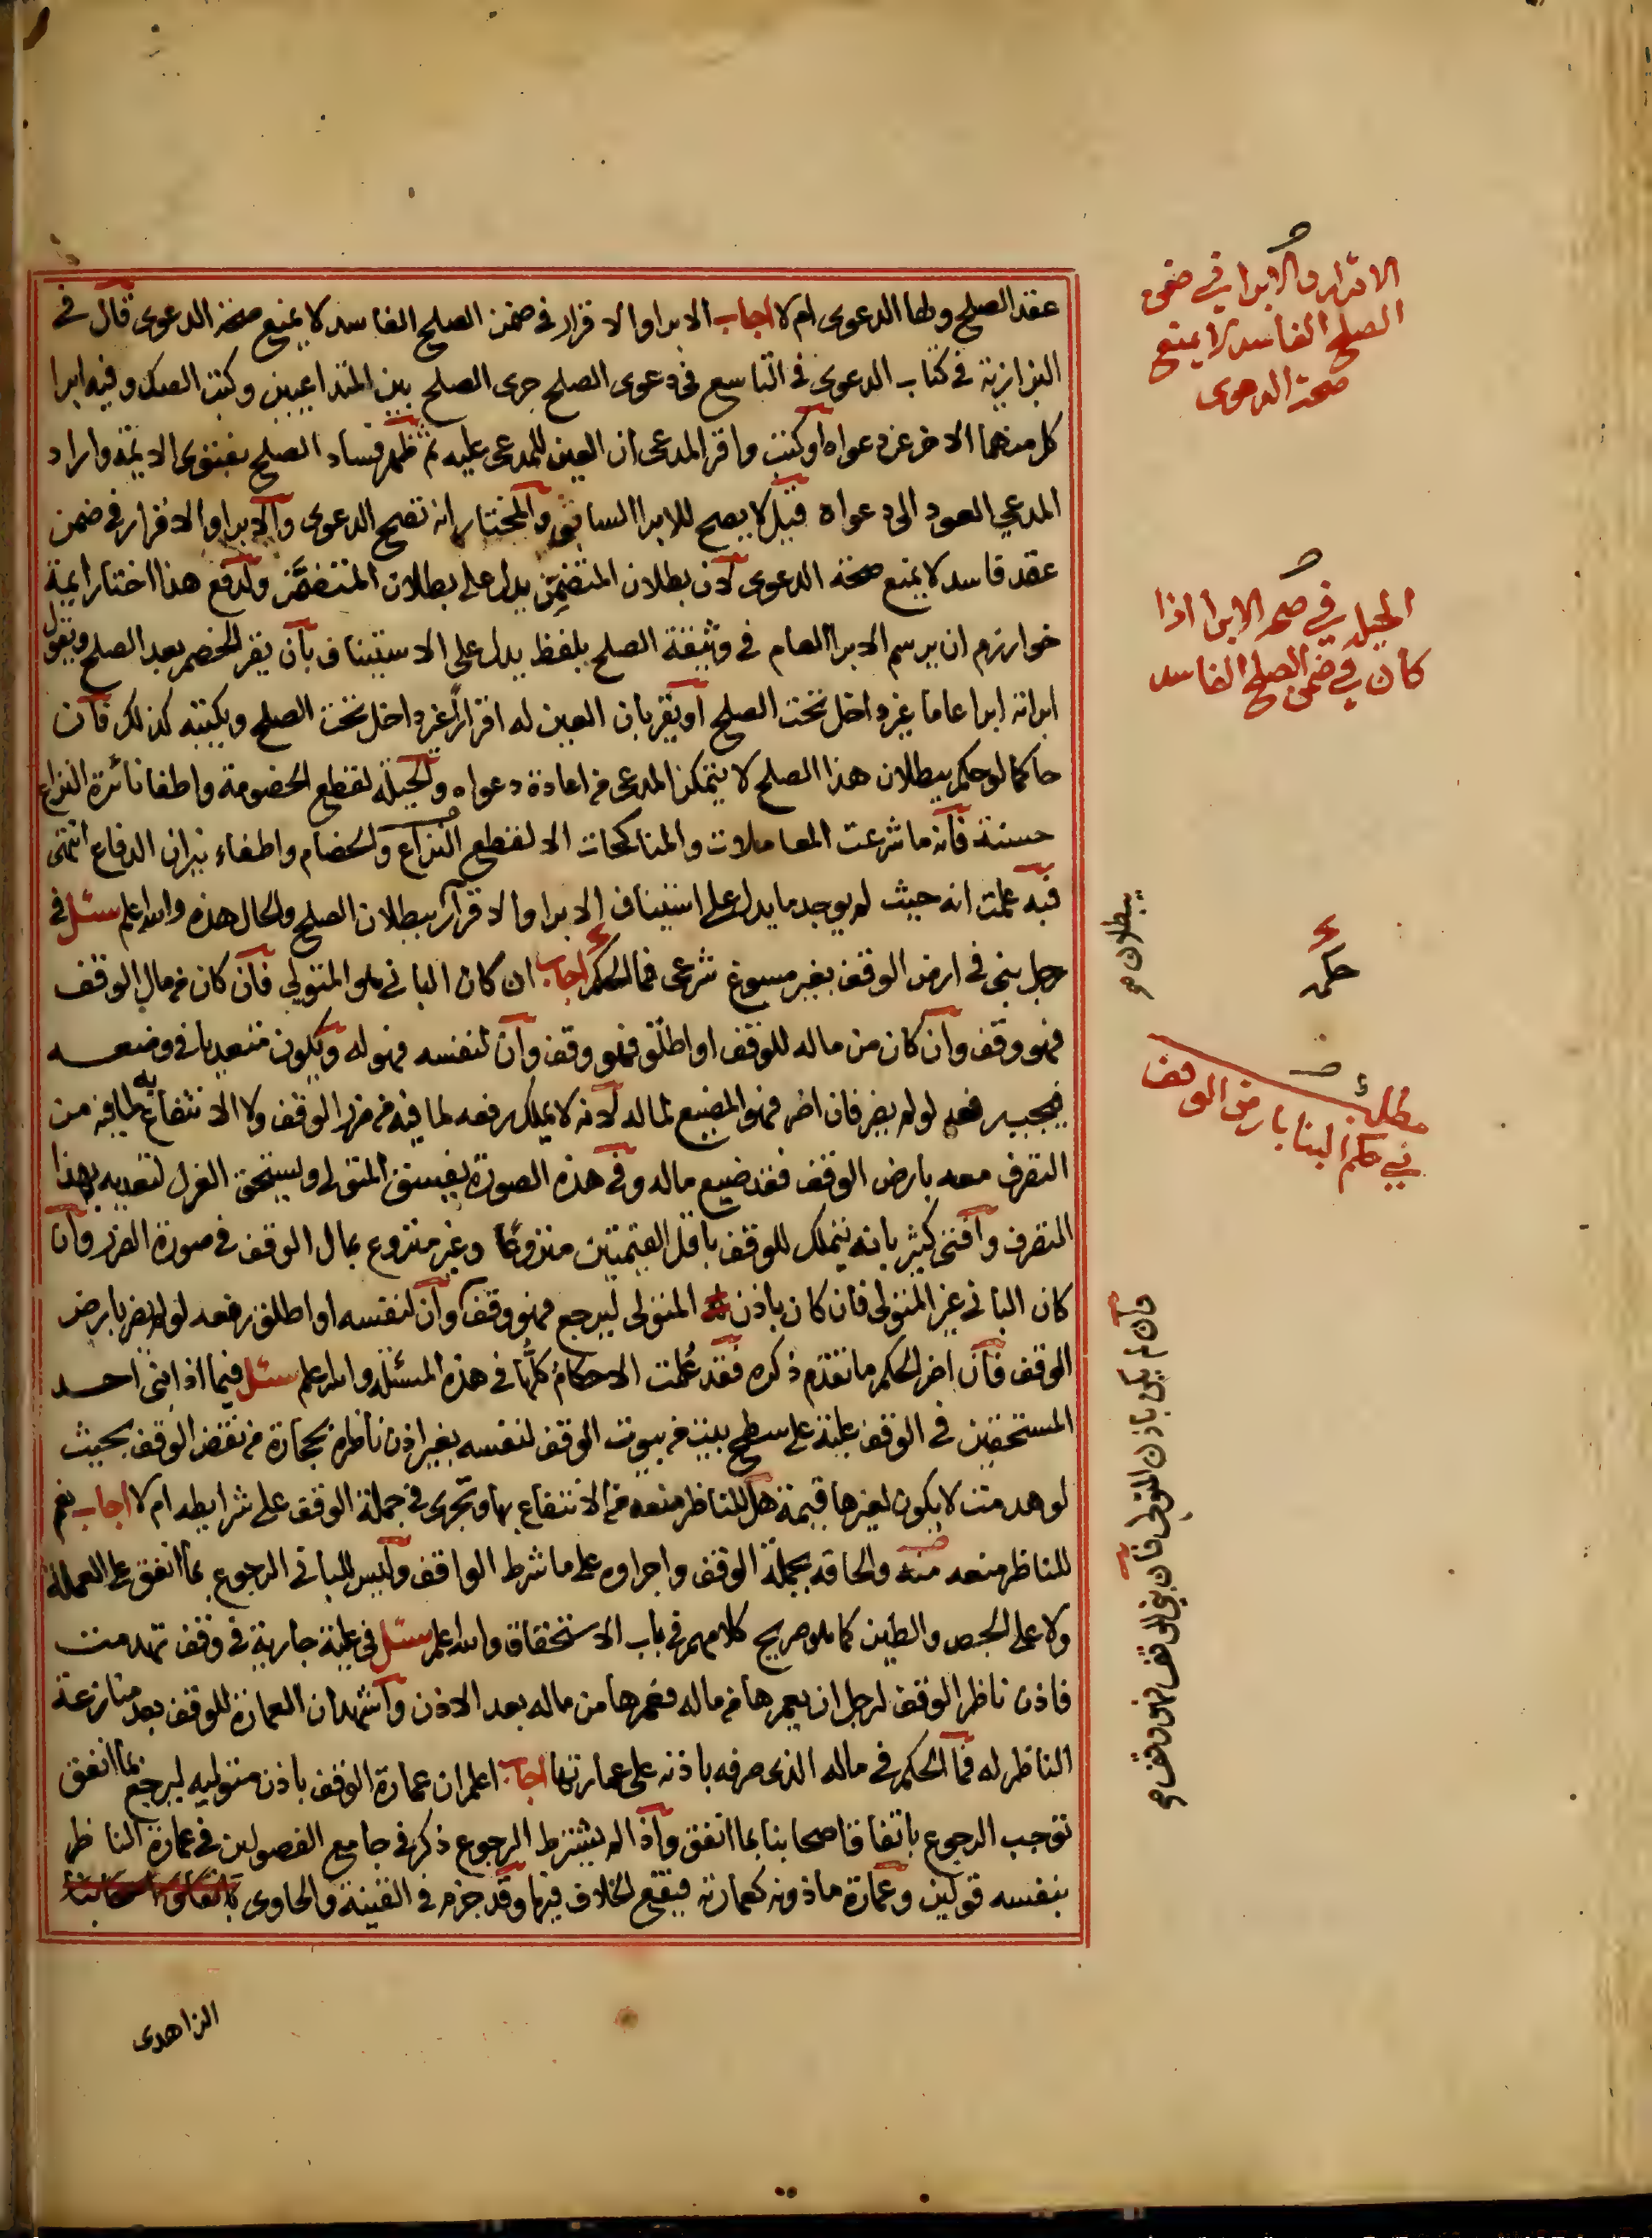 عقد الصلح ولها الدعوى ام لا اجاب الابرا والاقرار في ضمن الصلح الفاسد لا يمنع صحة الدعوى قال في
البزازية في كتاب الدعوى في التاسع في دعوى الصلح جرى الصلح بين المتداعيين وكتب الصك وفيه ابرا
كل منهما الاخر عن دعواه او كتب واقر المدعى ان العين للمدعى عليه ثم ظهر فساد الصلح بفتوى الايمة واراد
المدعي العود الى دعواه قيل لا يصح للابرا السابق والمختار انه تصح الدعوى والابرا والاقرار في ضمن
عقد فاسد لا يمنع صحة الدعوى لان بطلان المتضمن يدل على بطلان المتضمَّن ولدفع هذا اختار ايمة
خوارزم ان يرسم الابرا العام في وثيقة الصلح بلفظ يدل على الاستيناف بان يقر الخصم بعد الصلح ويقول
ابراته ابرا عاما غير داخل تحت الصلح او يقر بان العين له اقرارا غير داخل تحت الصلح ويكتبه كذلك فان
حاكما لو حكم ببطلان هذا الصلح لا يتمكن المدعى من اعادة دعواه والحيلة لقطع الخصومة واطفا نائرة النزاع
حسنة فانه ما شرعت المعاملات والمناكحات الا لقطع النزاع والخصام واطفاء نيران الدفاع انتهى
فبه علمت انه حيث لم يوجد ما يدل على استيناف الابرا والاقرار ببطلان الصلح والحال هذه والله اعلم سئل في
رجل بنى في ارض الوقف بغير مسوغ شرعى فما الحكم اجاب ان كان البانى هو المتولي فان كان من مال الوقف
فهو وقف وان كان من ماله للوقف او اطلق فهو وقف وان لنفسه فهو له ويكون متعديا في وضعه
فيجب رفعه لو لم يضر فان اضر فهو المضيع لماله لانه لا يملك رفعه لما فيه من ضرر الوقف ولا الانتفاع به لما فيه من
التصرف معه بارض الوقف فقد ضيع ماله وفى هذه الصورة يفسق المتولى ويستحق العزل لتعديه بهذا
التصرف وافتى كثير بانه يتملك للوقف باقل القيمتين منزوعا وغير منزوع بمال الوقف في صورة الضرر وان
كان البانى غير المتولى فان كان باذن المتولى ليرجع فهو وقف وان لنفسه او اطلق رفعه لو لم يضر بارض
الوقف فان اضر الحكم ما تقدم ذكره فقد عُلمت الاحكام كلُّها في هذه المسئلة والله اعلم سئل فيما اذا بنى احد
المستحقين في الوقف علية على سطح بيت من بيوت الوقف لنفسه بغير اذن ناظره بحجارة من نقض الوقف بحيث
لو هدمت لا يكون لغيرها قيمة هل للناظر منعه من الانتفاع بها وتجرى في جملة الوقف على شرايطه ام لا اجاب نعم
للناظر منعه منه والحاقه بجملة الوقف واجراوه على ما شرط الواقف وليس للبانى الرجوع بما انفق على العملة
ولا على الجص والطين كما هو صريح كلامهم في باب الاستحقاق والله اعلم سئل في علية جارية في وقف تهدمت
فاذن ناظر الوقف لرجل ان يعمرها من ماله فعمرها من ماله بعد الاذن واشهد ان العمارة للوقف بعد منازعة
الناظر له فما الحكم في ماله الذى صرفه باذنه على عمارتها اجاب اعلم ان عمارة الوقف باذن متوليه ليرجع بما انفق
توجب الرجوع باتفاق اصحابنا بما انفق واذا لم يشترط الرجوع ذكر في جامع الفصولين في عمارة الناظر
بنفسه قولين وعمارة ماذونه كعمارته فيقع الخلاف فيها وقد جزم في القنية والحاوى باتفاق اصحابنا
الزاهدى
الاقرار والابرا في ضمن
الصلح الفاسد لا يمنع
صحة الدعوى
الحيلة في صحة الابرا اذا
كان في ضمن الصلح الفاسد
يبطلان صح
حكم
مطلب
في حكم البنا بارض الوقف
وان لم يكن باذن المتولى فان بنى للوقف فهو وقف صح